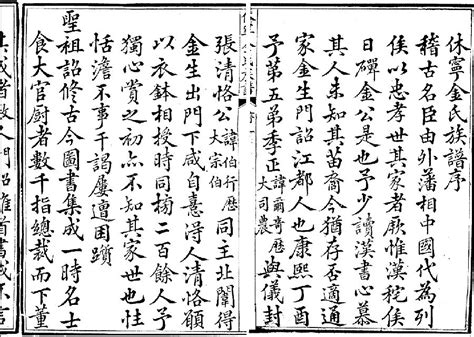 休寧金氏族譜序
稽古名臣由外藩相中國代為列
侯以忠孝世其家者厥惟漢秺侯
日磾金公是也予少讀漢書心慕
其人未知其苗裔今猶存否適通
家金生門詔江都人也康熙丁酉
予第五弟季正諱爾奇歷大司農與儀封
張清恪公諱伯行歷大宗伯同主北闈得
金生出門下咸自憙得人清恪願
以衣鉢相授時同榜二百餘人予
獨心賞之初亦不知其家世也性
恬澹不事干謁屢遭困躓
聖祖詔修古今圖書集成一時名士
食大官廚者數千指總裁而下董